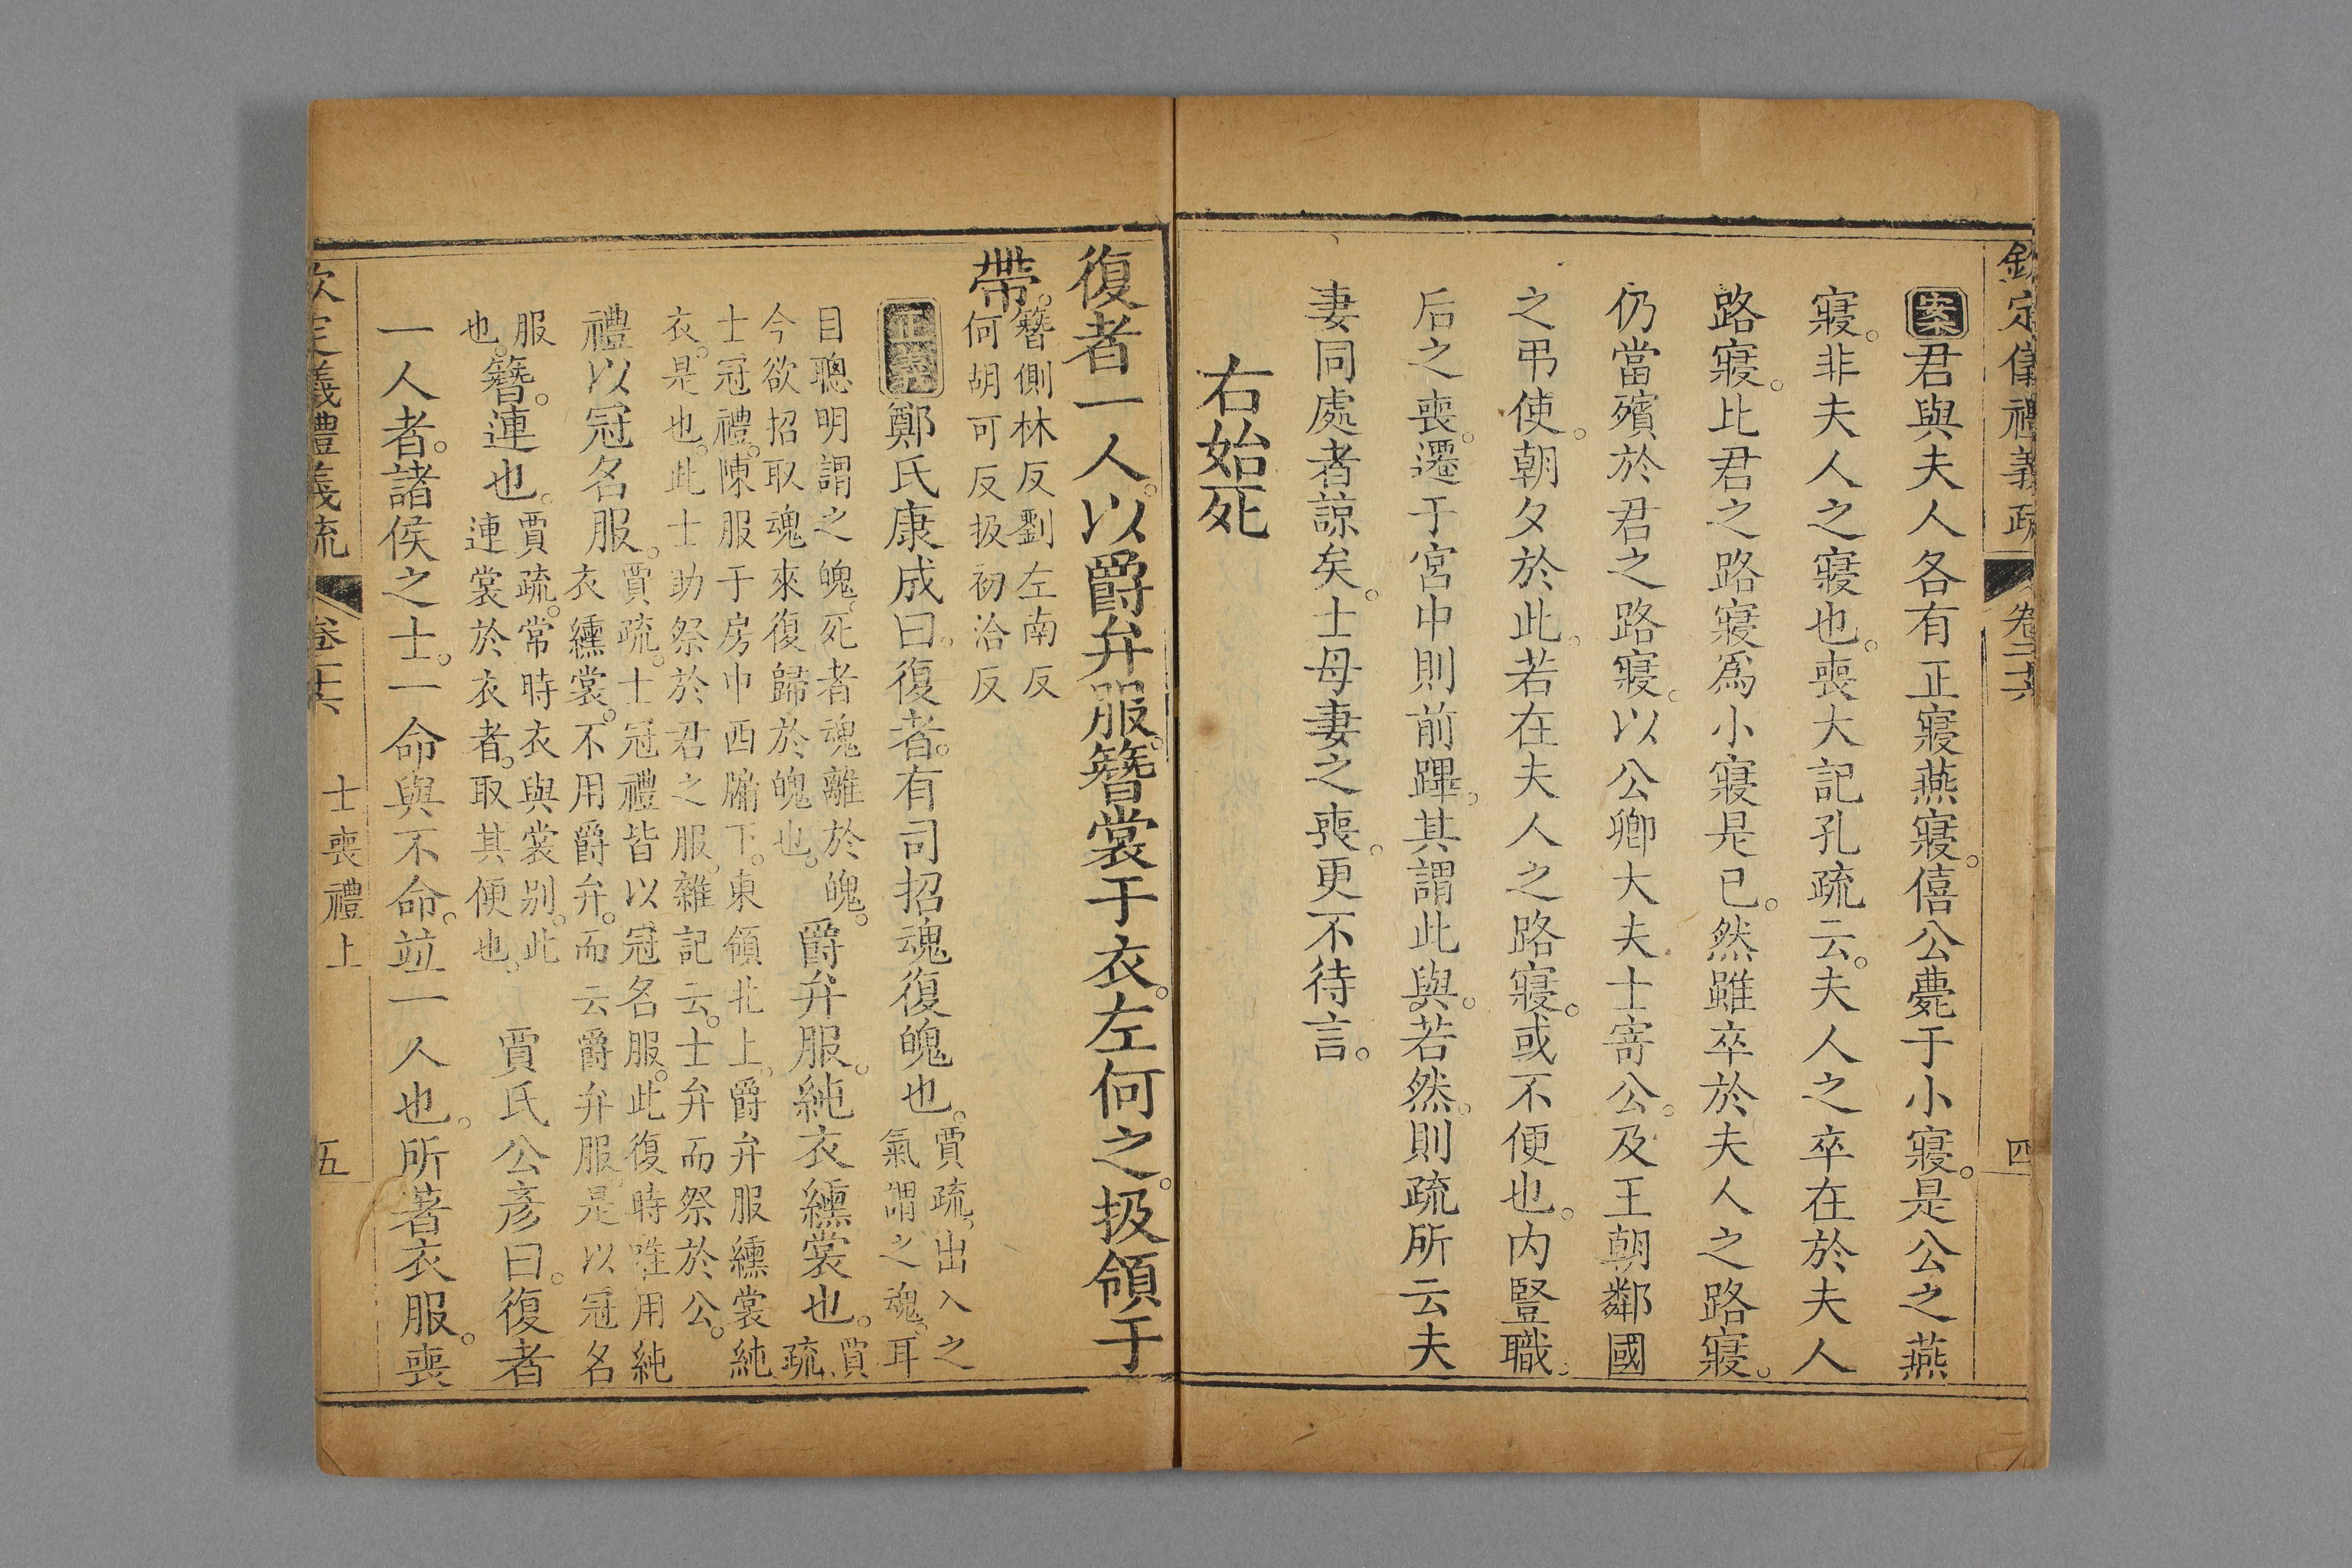 欽定儀禮義疏 卷二十六 四
案君與夫人各有正寢燕寢。僖公薨于小寢。是公之燕
寢。非夫人之寢也。喪大記孔疏云。夫人之卒在於夫人
路寢。比君之路寢爲小寢是已。然雖卒於夫人之路寢。
仍當殯於君之路寢。以公卿大夫士寄公。及王朝鄰國
之弔使。朝夕於此。若在夫人之路寢。或不便也。內豎職。
后之喪。遷于宮中則前蹕。其謂此與。若然。則疏所云夫
妻同處者諒矣。士母妻之喪。更不待言。
右始死
復者一人。以爵弁服。簪裳于衣。左何之。扱領于
帶。簪側林反劉左南反
何胡可反扱初洽反
正義鄭氏康成曰。復者。有司招魂復魄也。賈疏。出入之
氣謂之魂。耳
目聰明謂之魄。死者魂離於魄。
今欲招取魂來復歸於魄也。爵弁服。純衣纁裳也。賈
疏。
士冠禮。陳服于房中西牖下。東領北上。爵弁服纁裳純
衣。是也。此士助祭於君之服。雜記云。士弁而祭於公。
禮以冠名服。賈疏。士冠禮皆以冠名服。此復時唯用純
衣纁裳。不用爵弁。而云爵弁服。是以冠名
服
也。簪。連也。賈疏。常時衣與裳別。此
連裳於衣者。取其便也。賈氏公彥曰。復者
一人者。諸侯之士。一命與不命。竝一人也。所著衣服。喪
欽定儀禮義疏 卷二十六 士喪禮上 五